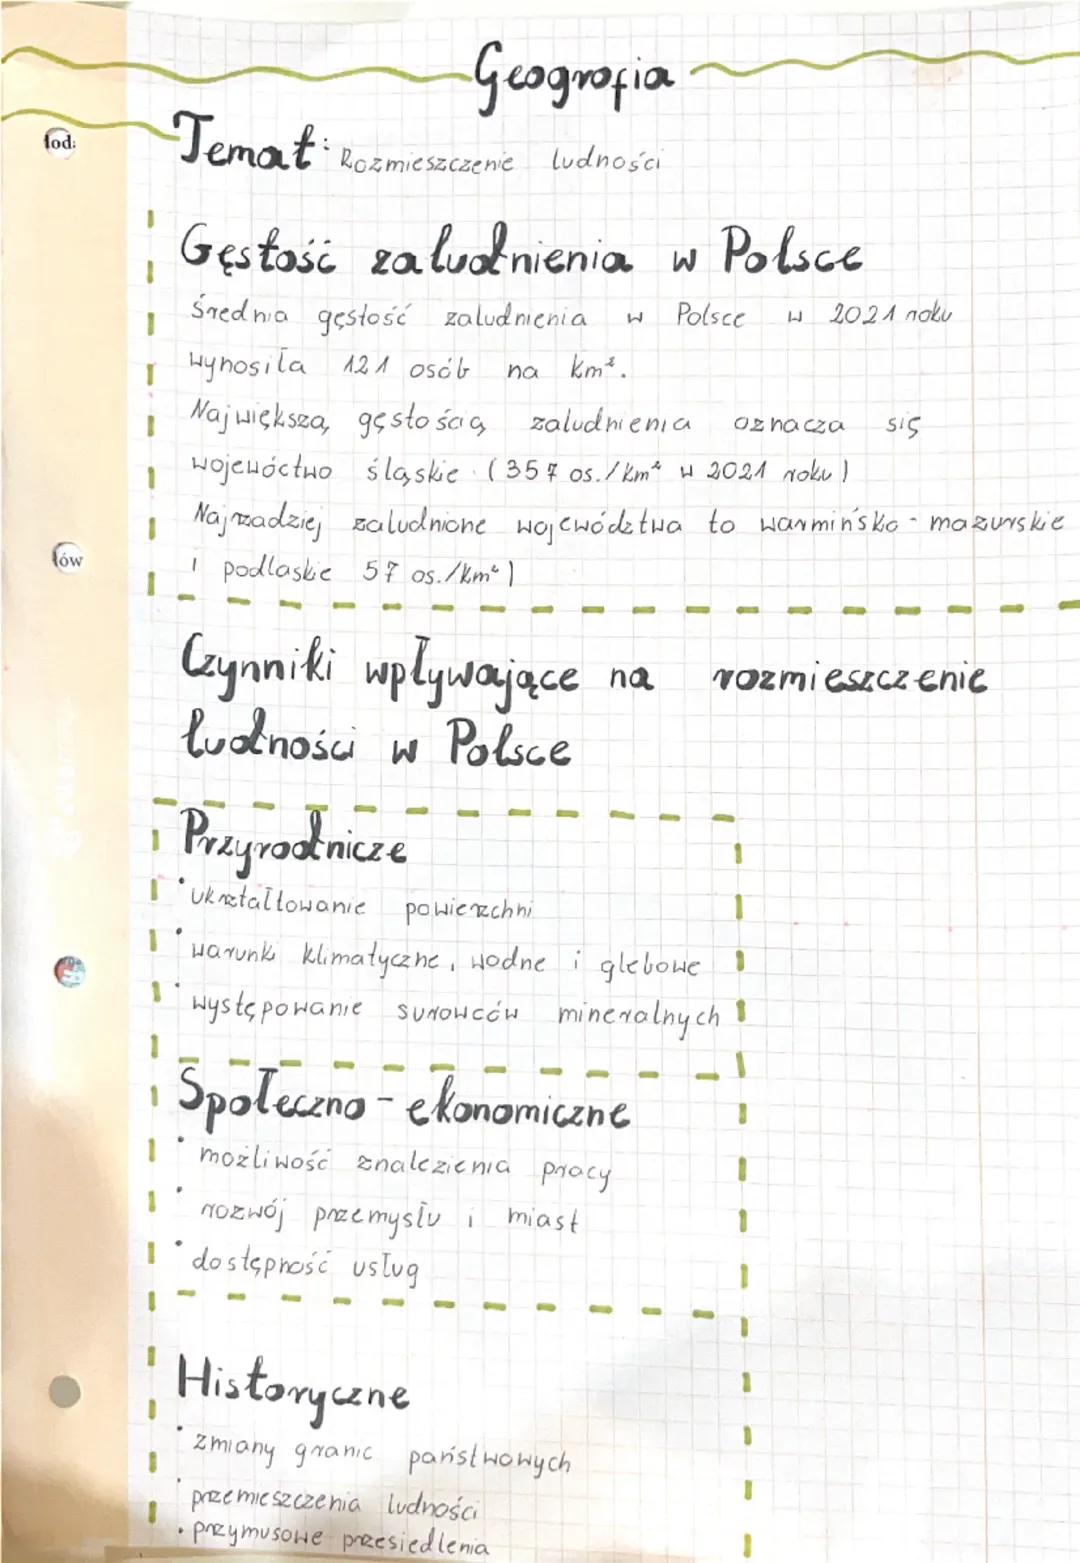 Geografia
Temat: Rozmieszczenie ludności
Gęstość zaludnienia w Polsce
Średnia gęstość zaludnienia w Polsce w 2021 roku
wynosiła 121 osób na km².
Największą gęstością zaludnienia oznacza się
województwo śląskie (357 os./km² w 2021 roku)
Najrzadziej zaludnione województwa to warmińsko-mazurskie
i podlaskie 57 os./km²)
Czynniki wpływające na rozmieszczenie
ludności w Polsce
Przyrodnicze
• ukształtowanie powierzchni
• warunki klimatyczne, wodne i glebowe
• występowanie surowców mineralnych
Społeczno-ekonomiczne
• możliwość znalezienia pracy
• rozwój przemysłu i miast
• dostępność usług
Historyczne
• zmiany granic państwowych
• przemieszczenia ludności
• przymusowe przesiedlenia
ów